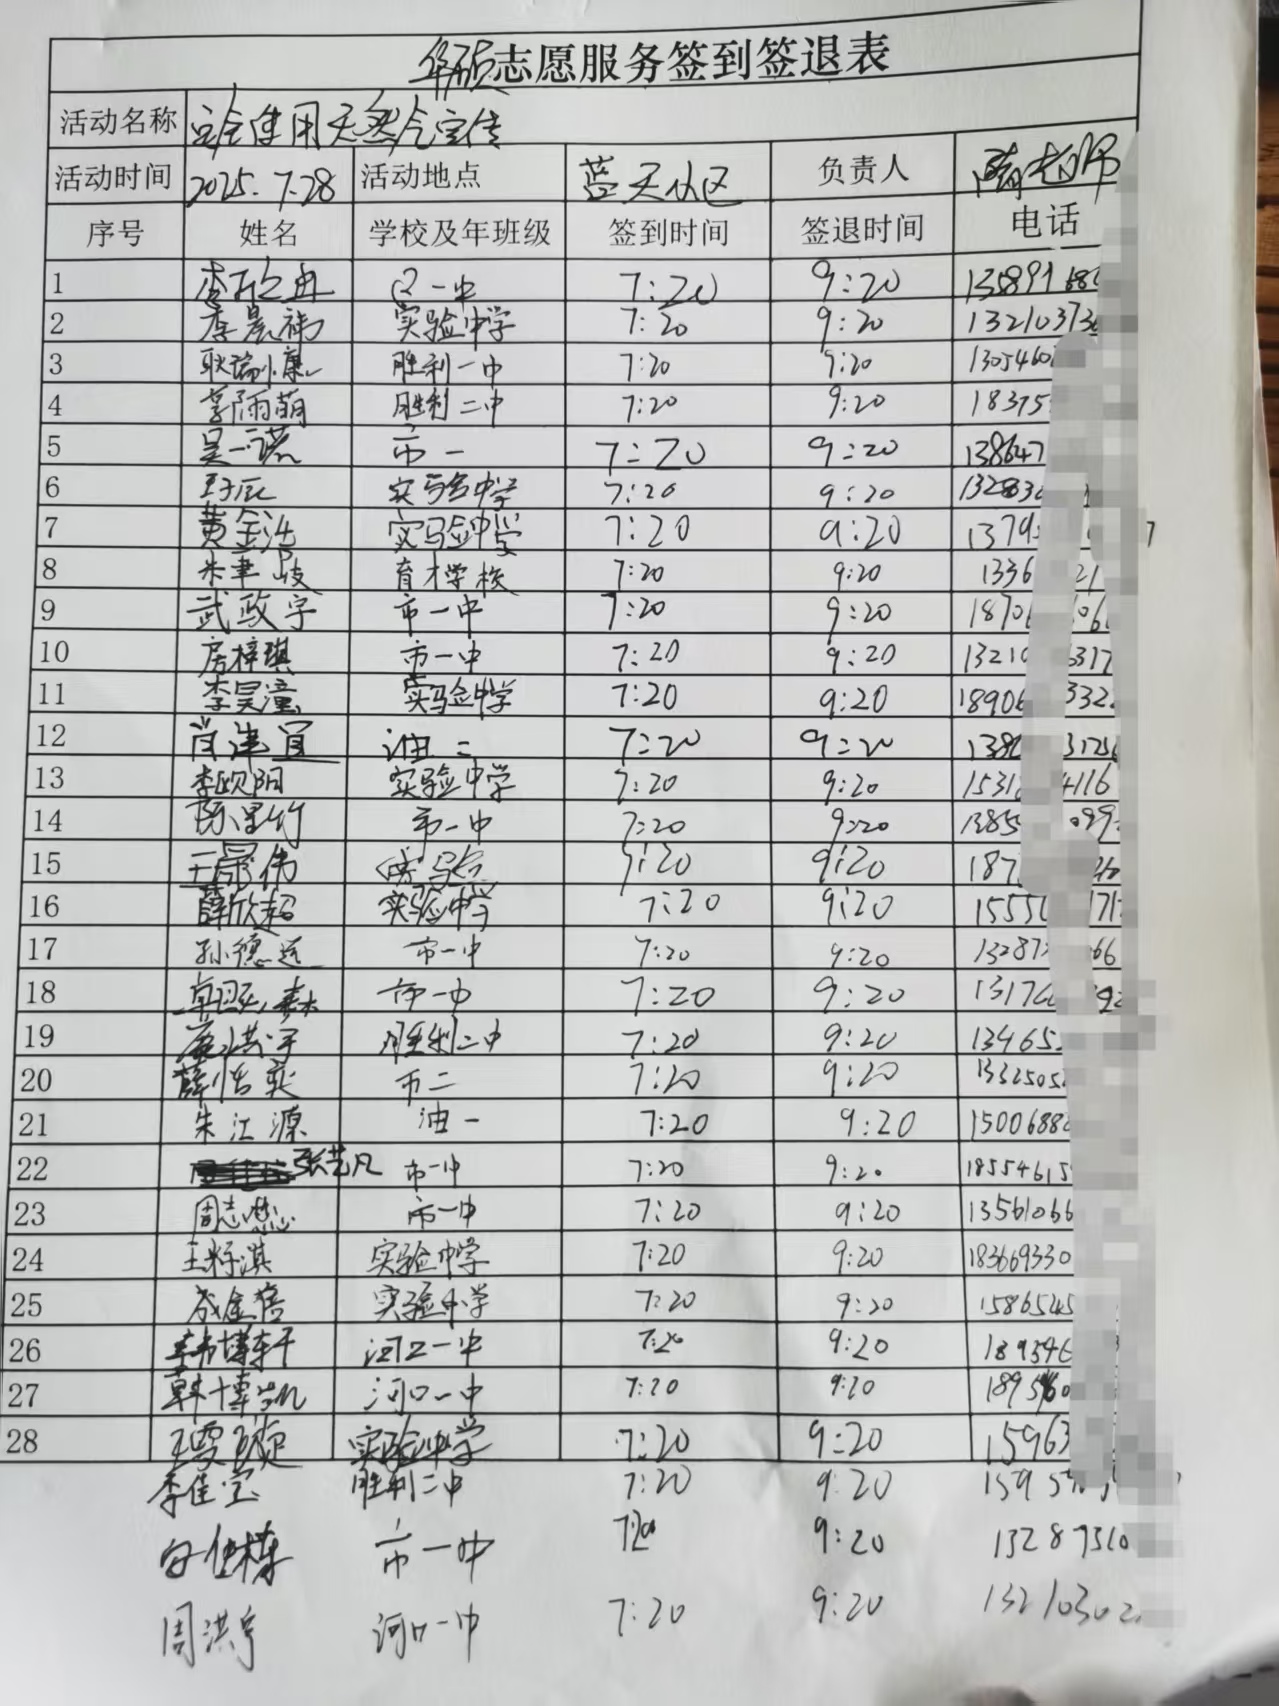 志愿服务签到签退表
活动名称 安全使用天然气宣传
活动时间 2025.7.28 活动地点 蓝天小区 负责人 老师
序号 姓名 学校及年班级 签到时间 签退时间 电话
1 李欣冉 一中 7:20 9:20
2 李晨祎 实验中学 7:20 9:20 1321037
3 耿瑞康 胜利一中 7:20 9:20 1305460
4 李雨萌 胜利二中 7:20 9:20 18375
5 吴一诺 市一 7:20 9:20 138647
6 实验中学 7:20 9:20
7 黄金浩 实验中学 7:20 9:20 1379
8 育才学校 7:20 9:20 1336
9 武政宇 市一中 7:20 9:20 1870
10 房梓琪 市一中 7:20 9:20 1321 317
11 李昊潼 实验中学 7:20 9:20 18906 332
12 肖津宜 油二 7:20 9:20 138
13 李欧阳 实验中学 7:20 9:20 1531 4116
14 市一中 7:20 9:20 1385
15 实验 7:20 9:20 187
16 薛欣超 实验中学 7:20 9:20 1555 171
17 孙德运 市一中 7:20 9:20 13287 66
18 市一中 7:20 9:20 1317
19 胜利二中 7:20 9:20 13465
20 薛怡奕 市二 7:20 9:20 1332505
21 朱江源 油一 7:20 9:20 1500688
22 张艺凡 市一中 7:20 9:20 18554615
23 周志懋 市一中 7:20 9:20 13561066
24 王梓淇 实验中学 7:20 9:20 183669330
25 成金倍 实验中学 7:20 9:20 1586545
26 韩博轩 河口一中 7:20 9:20 189346
27 韩博凯 河口一中 7:20 9:20 189
28 王雯 实验中学 7:20 9:20 15963
李佳宝 胜利二中 7:20 9:20 1595
市一中 7:20 9:20 13287310
周洪宇 河口一中 7:20 9:20 13210302